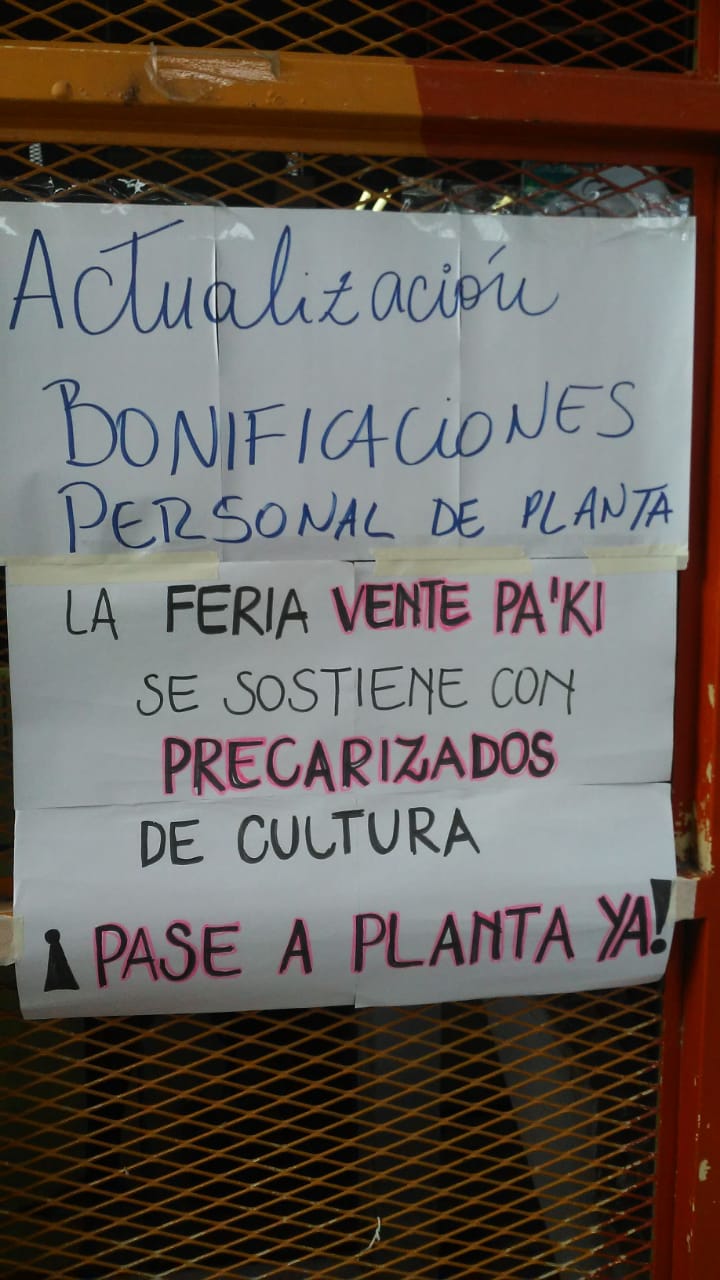 Actualización
BONIFICACiONES
PERSONAL DE PLANTA
LA FERIA VENTE PA'KI
SE SOSTIENE CON
PRECARIZADOS
DE CULTURA
¡PASE A PLANTA YA!